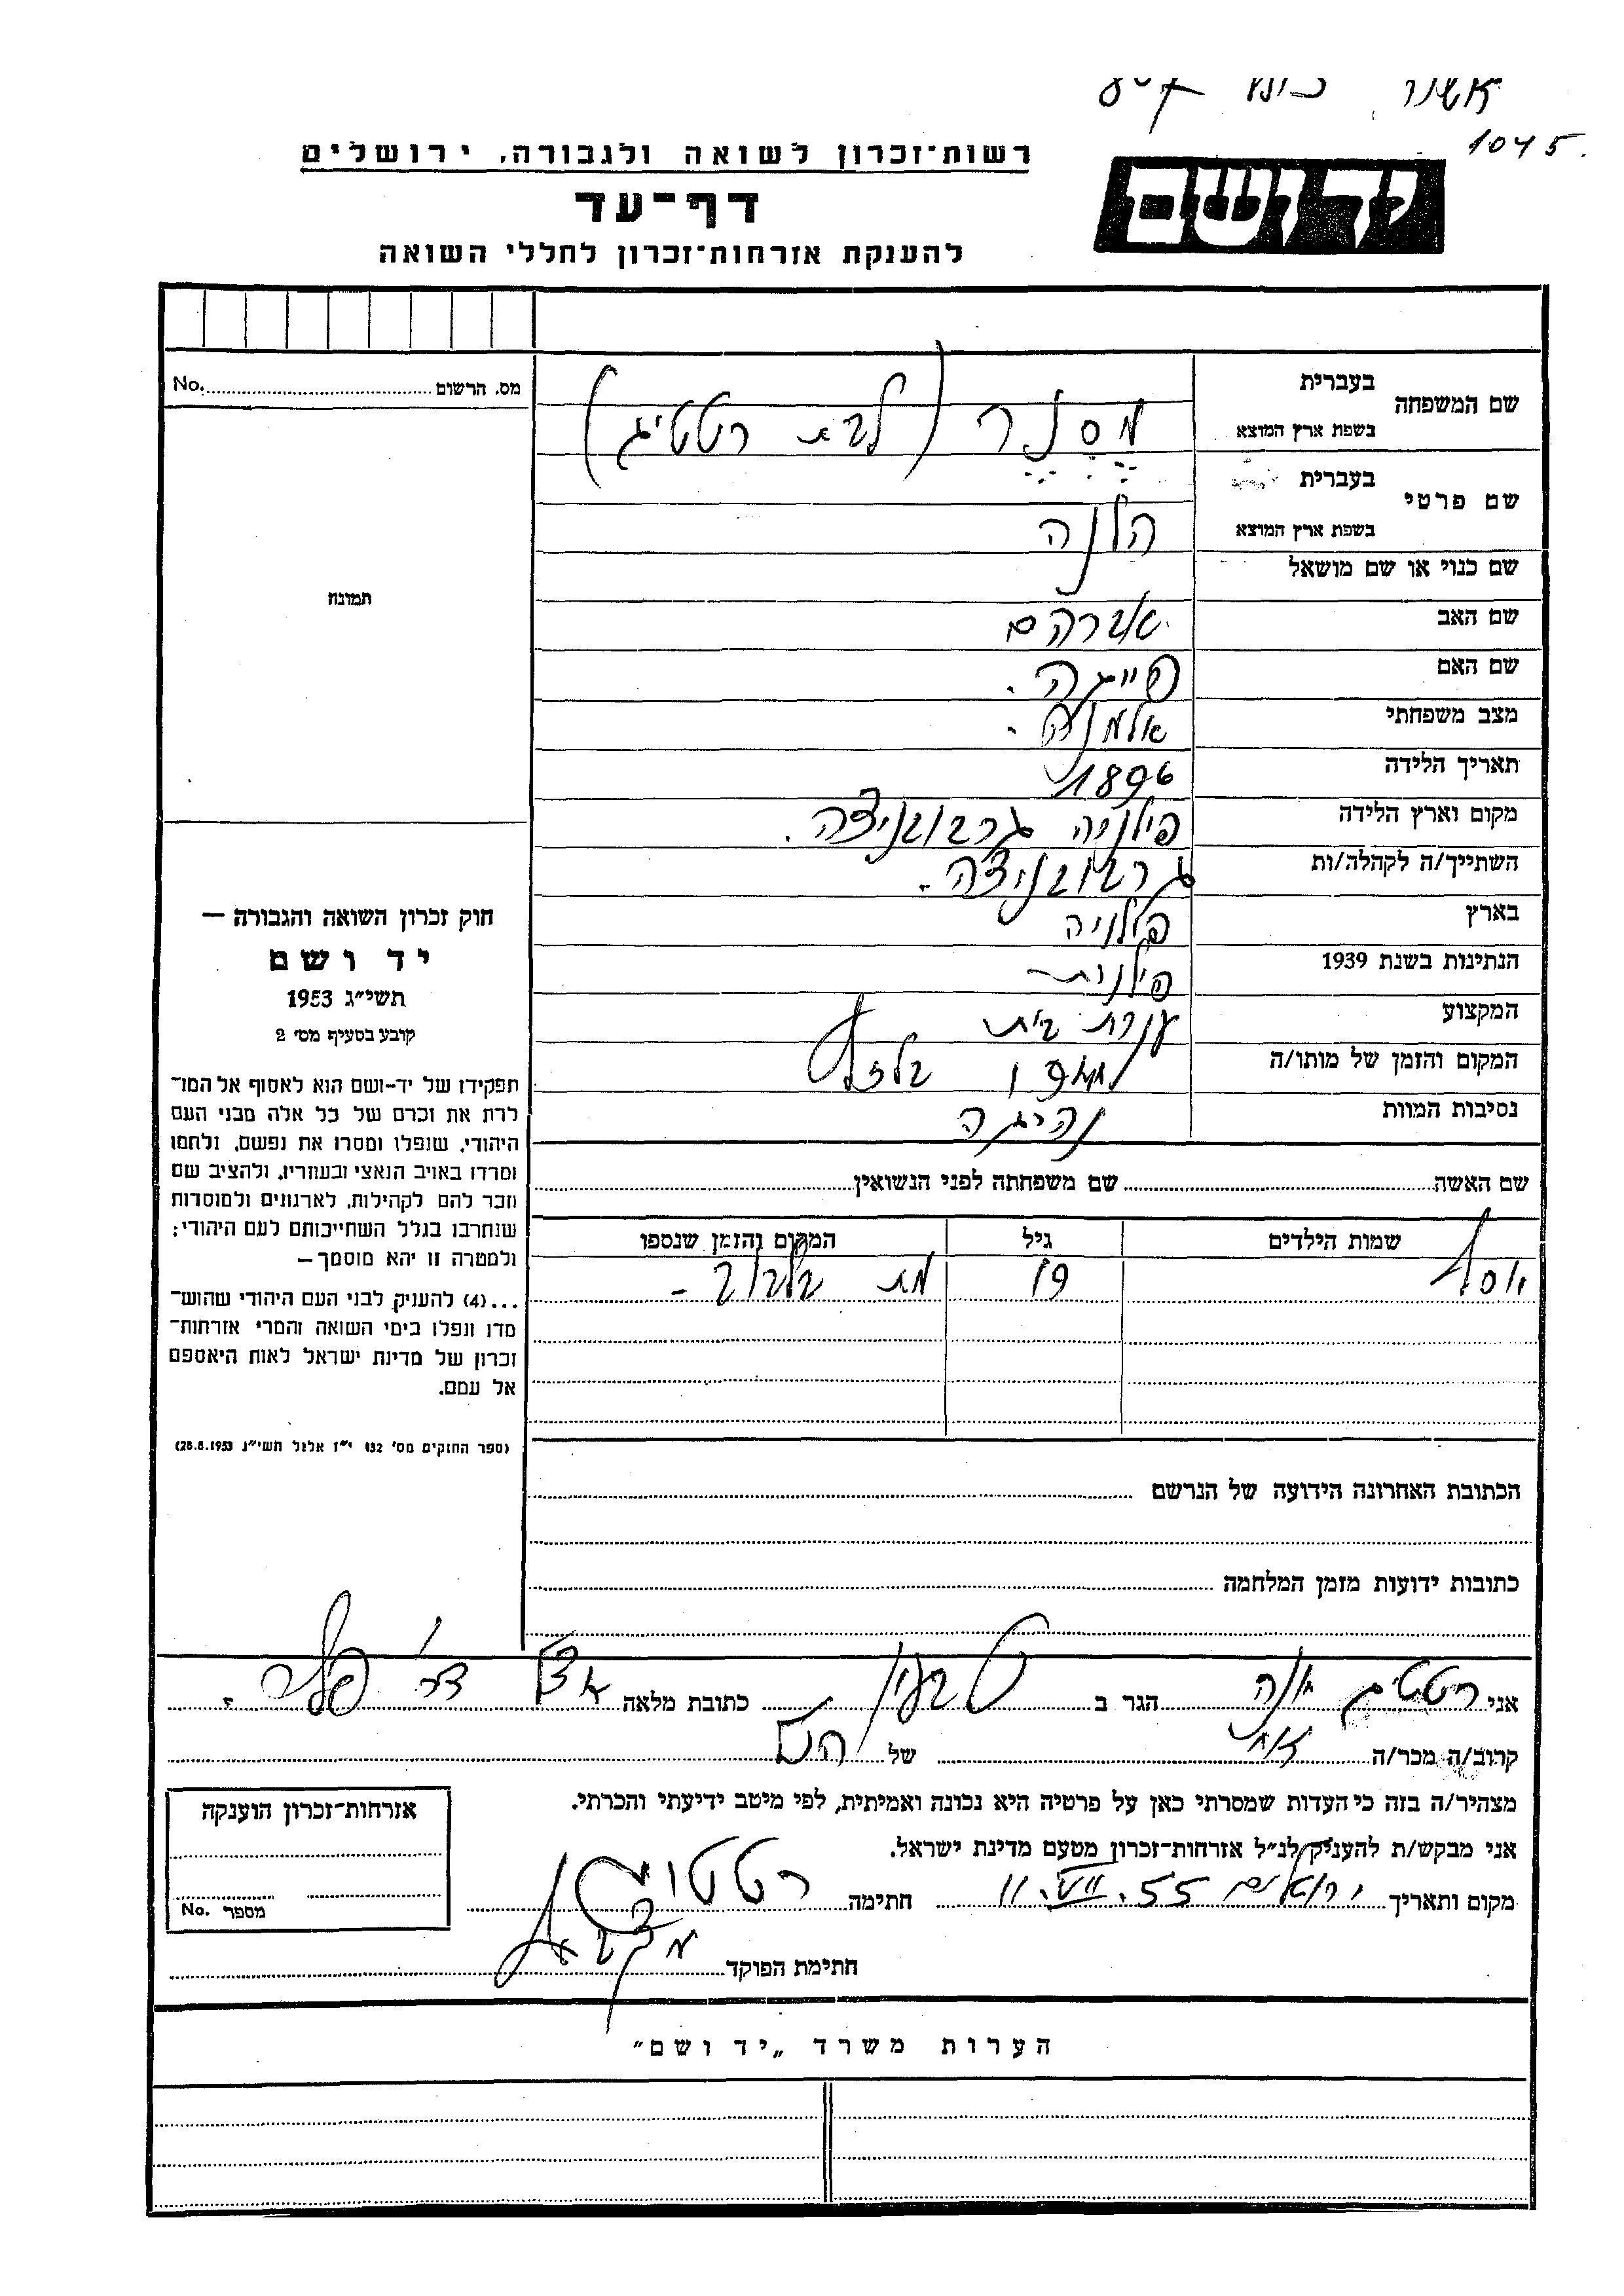 1045.
רשות־זכרון לשואה ולגבורה, ירושלים
יד ושם
דף־עד
להענקת אזרחות־זכרון לחללי השואה
No. מס. הרשום
שם המשפחה בעברית
בשפת ארץ המוצא
מסנר (לבת רטטיג)
שם פרטי בעברית
בשפת ארץ המוצא
הלנה
שם כנוי או שם מושאל
שם האב אברהם
שם האם פייגה.
מצב משפחתי אלמנה.
תאריך הלידה 1896
מקום וארץ הלידה פולניה
השתייך/ה לקהלה/ות
בארץ פולניה
הנתינות בשנת 1939 פולנית
המקצוע עקרת בית
המקום והזמן של מותו/ה
נסיבות המוות נהרגה
תמונה
חוק זכרון השואה והגבורה —
יד ושם
תשי״ג 1953
קובע בסעיף מס׳ 2
תפקידו של יד־ושם הוא לאסוף אל המו־
לדת את זכרם של כל אלה מבני העם
היהודי, שנפלו ומסרו את נפשם, נלחמו
ומרדו באויב הנאצי ובעוזריו, ולהציב שם
וזכר להם לקהילות, לארגונים ולמוסדות
שנחרבו בגלל השתייכותם לעם היהודי;
ולמטרה זו יהא מוסמך —
...(4) להעניק לבני העם היהודי שהוש־
מדו ונפלו בימי השואה והמרי אזרחות־
זכרון של מדינת ישראל לאות היאספם
אל עמם.
(ספר החוקים מס׳ 132 י״ז אלול תשי״ג 28.8.1953)
שם האשה שם משפחתה לפני הנשואין
שמות הילדים גיל המקום והזמן שנספו
יוסף 19 מת
הכתובת האחרונה הידועה של הנרשם
כתובות ידועות מזמן המלחמה
אני רטטיג אנה הגר ב טבעון כתובת מלאה
קרוב/ה מכר/ה של
מצהיר/ה בזה כי העדות שמסרתי כאן על פרטיה היא נכונה ואמיתית, לפי מיטב ידיעתי והכרתי.
אני מבקש/ת להעניק לנ״ל אזרחות־זכרון מטעם מדינת ישראל.
מקום ותאריך ירושלים 11.VII.55 חתימה רטטיג
חתימת הפוקד
אזרחות־זכרון הוענקה
No. מספר
הערות משרד „יד ושם״